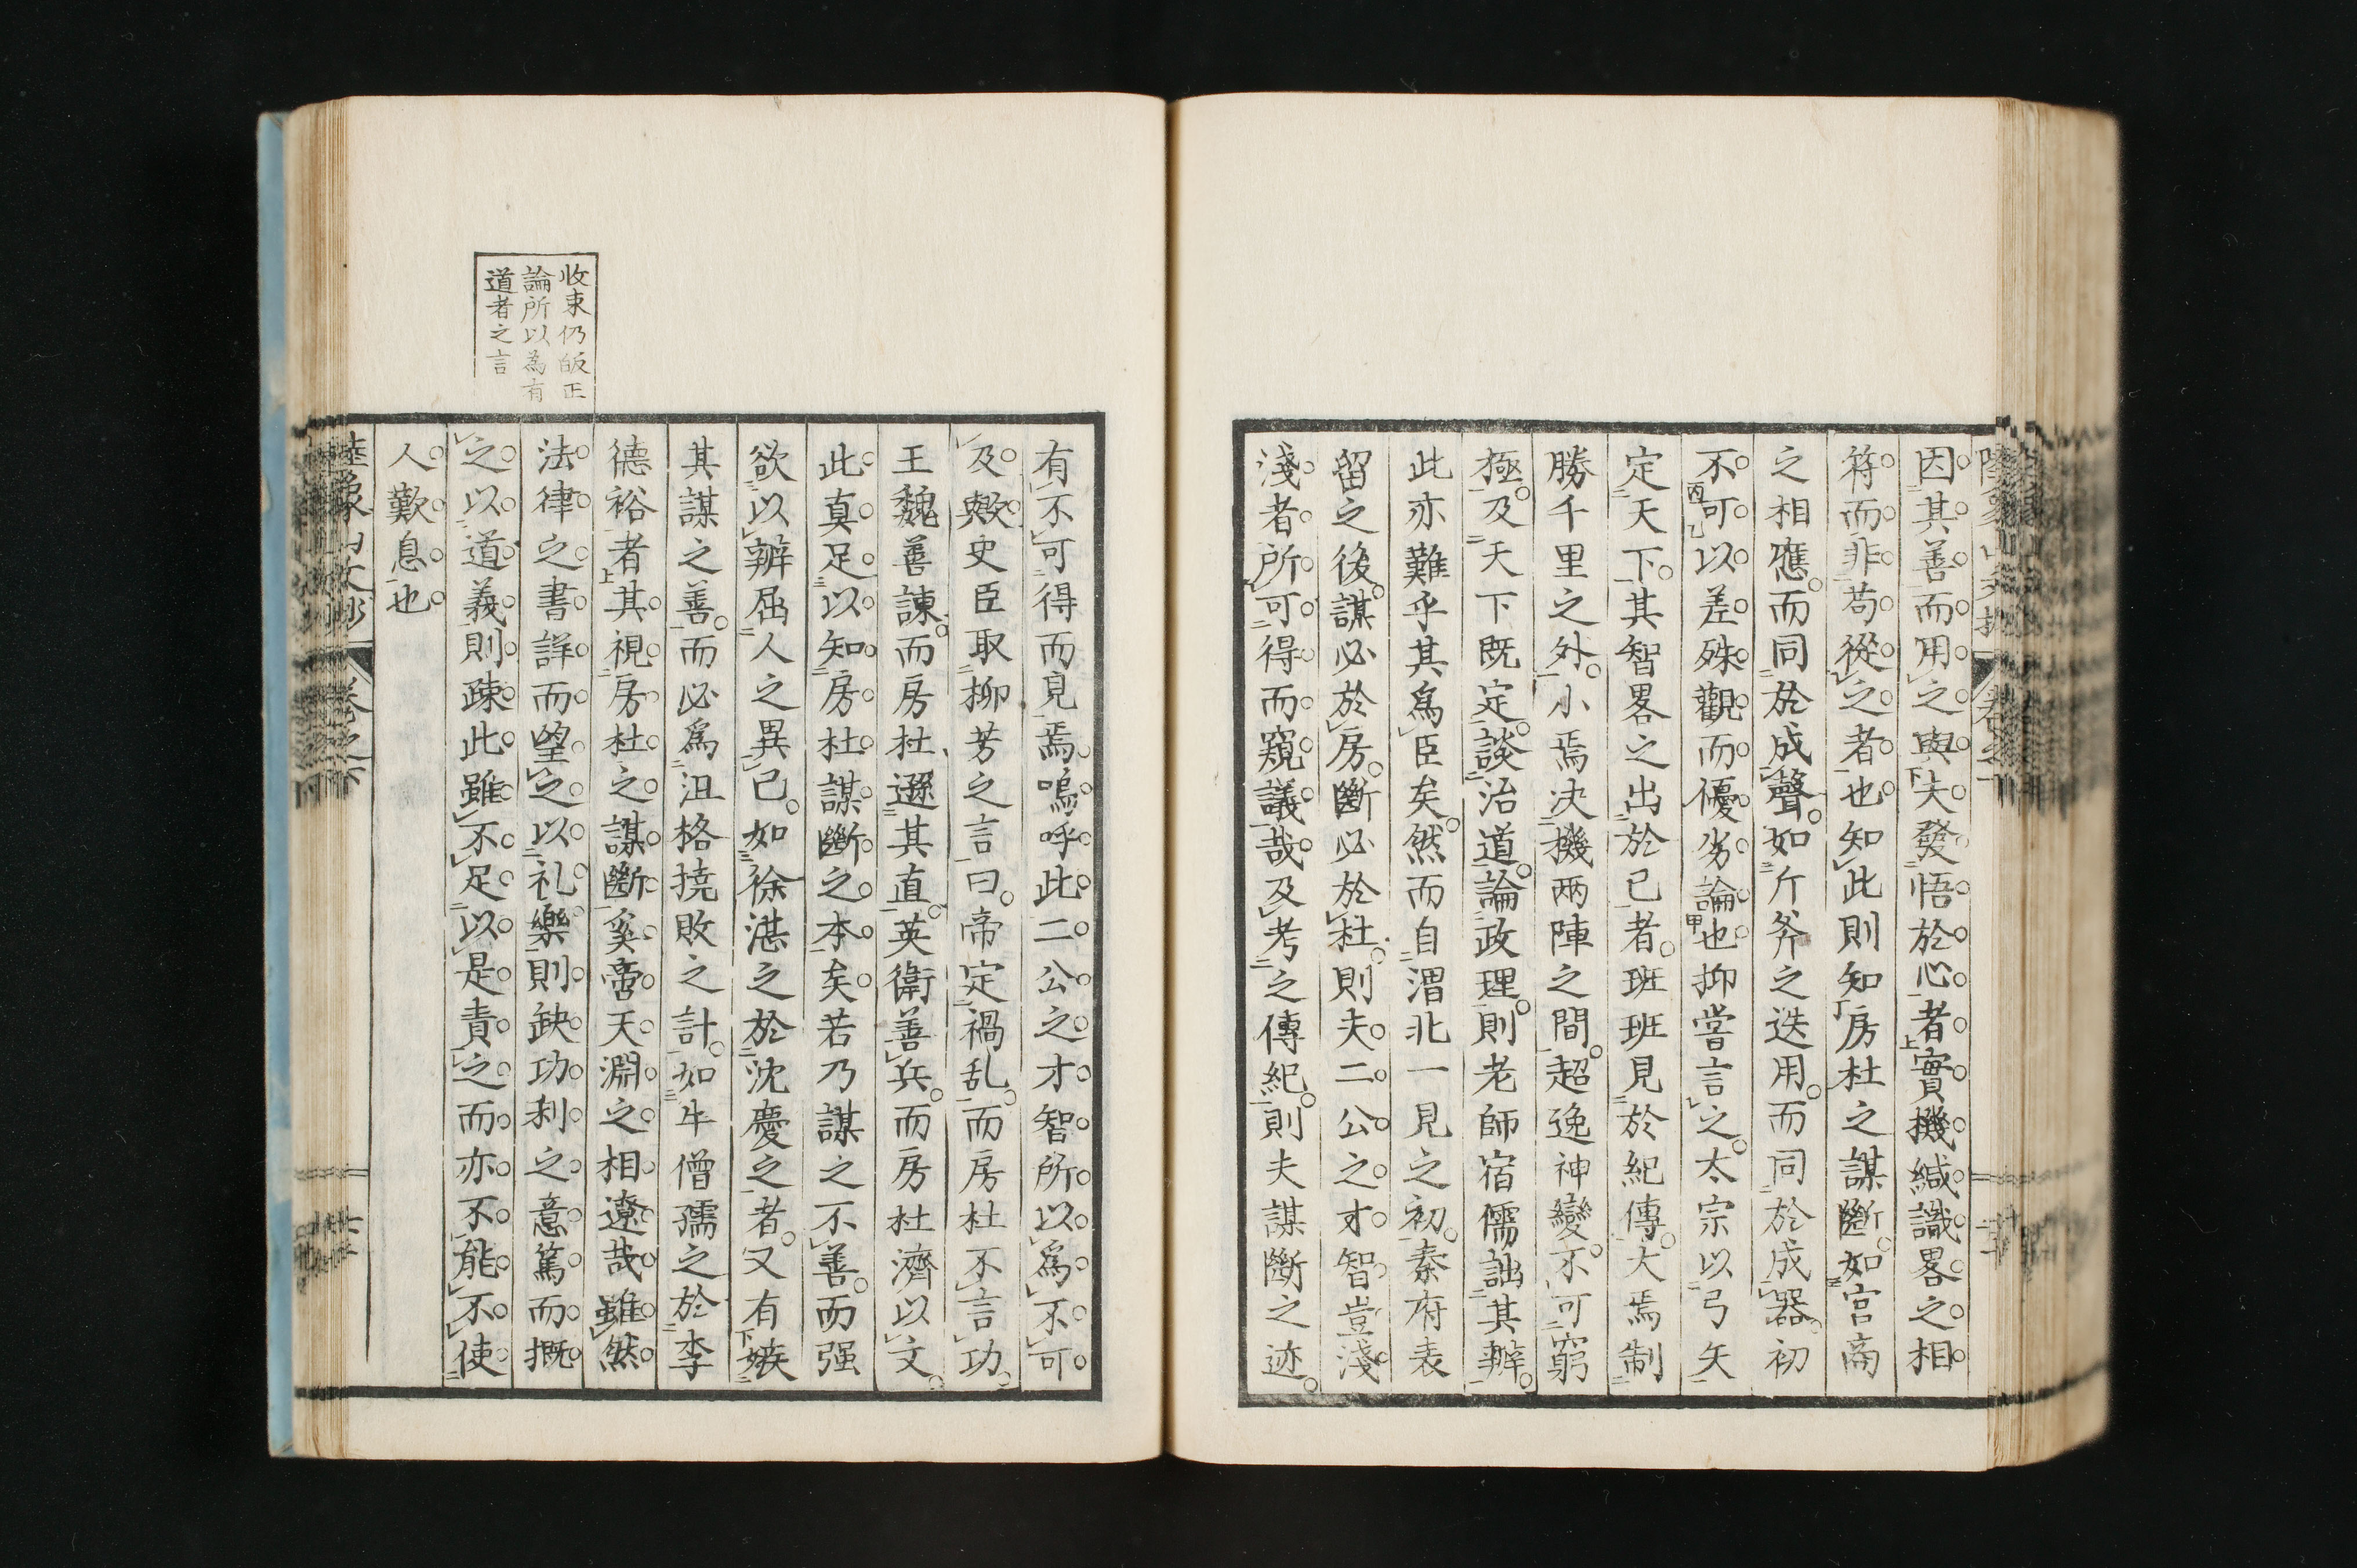 因其善而用之與夫發悟於心者實機緘識畧之相
符而非苟從之者也知此則知房杜之謀斷如宮商
之相應而同於成聲如斤斧之迭用而同於成器初
不可以差殊觀而優劣論也抑嘗言之太宗以弓矢
定天下其智畧之出於已者班班見於紀傳大焉制
勝千里之外小焉决機兩陣之間超逸神變不可窮
極及天下既定談治道論政理則老師宿儒詘其辨
此亦難乎其爲臣矣然而自渭北一見之初秦府表
留之後謀必於房斷必於杜則夫二公之才智豈淺
淺者所可得而窺議哉及考之傳紀則夫謀斷之迹
有不可得而見焉嗚呼此二公之才智所以爲不可
及歟史臣取柳芳之言曰帝定禍乱而房杜不言功
王魏善諫而房杜遜其直英衛善兵而房杜濟以文
此真足以知房杜謀斷之本矣若乃謀之不善而强
欲以辨屈人之異已如徐湛之於沈慶之者又有嫉
其謀之善而必爲沮格撓敗之計如牛僧孺之於李
德裕者其視房杜之謀斷奚啻天淵之相遼哉雖然
法律之書詳而望之以礼樂則缺功利之意篤而概
之以道義則疎此雖不足以是責之而亦不能不使
人歎息也
收束仍皈正
論所以為有
道者之言
陸象山文抄 卷之下